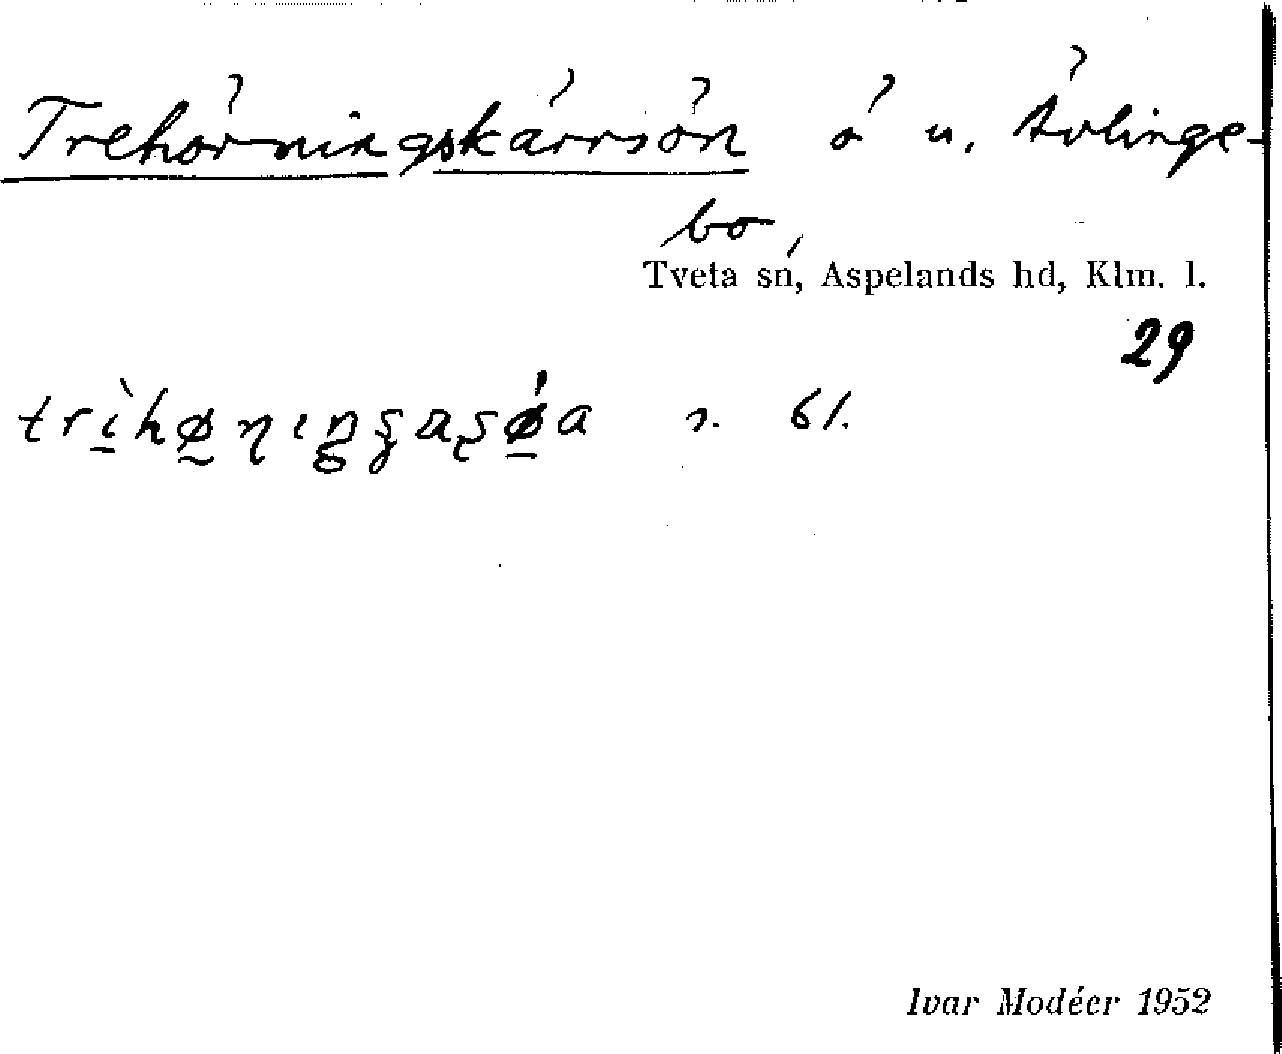 Trehörningskärrsön ö u. Ävlinge-
bo,
Tveta sn, Aspelands hd, Klm. l.
29
s. 61.
Ivar Modéer 1952